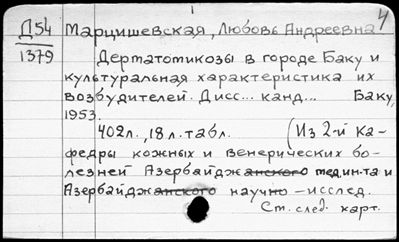 4
Д54 Марцишевская, Любовь Андреевна
1379
Дерматомикозы в городе Баку и
культуральная характеристика их
возбудителей. Дисс... канд... Баку,
1953.
402л., 18 л. табл. (Из 2-й ка-
федры кожных и венерических бо-
лезней Азербайджанского мед.ин-та и
Азербайджанского научно-исслед.
См. след. карт.